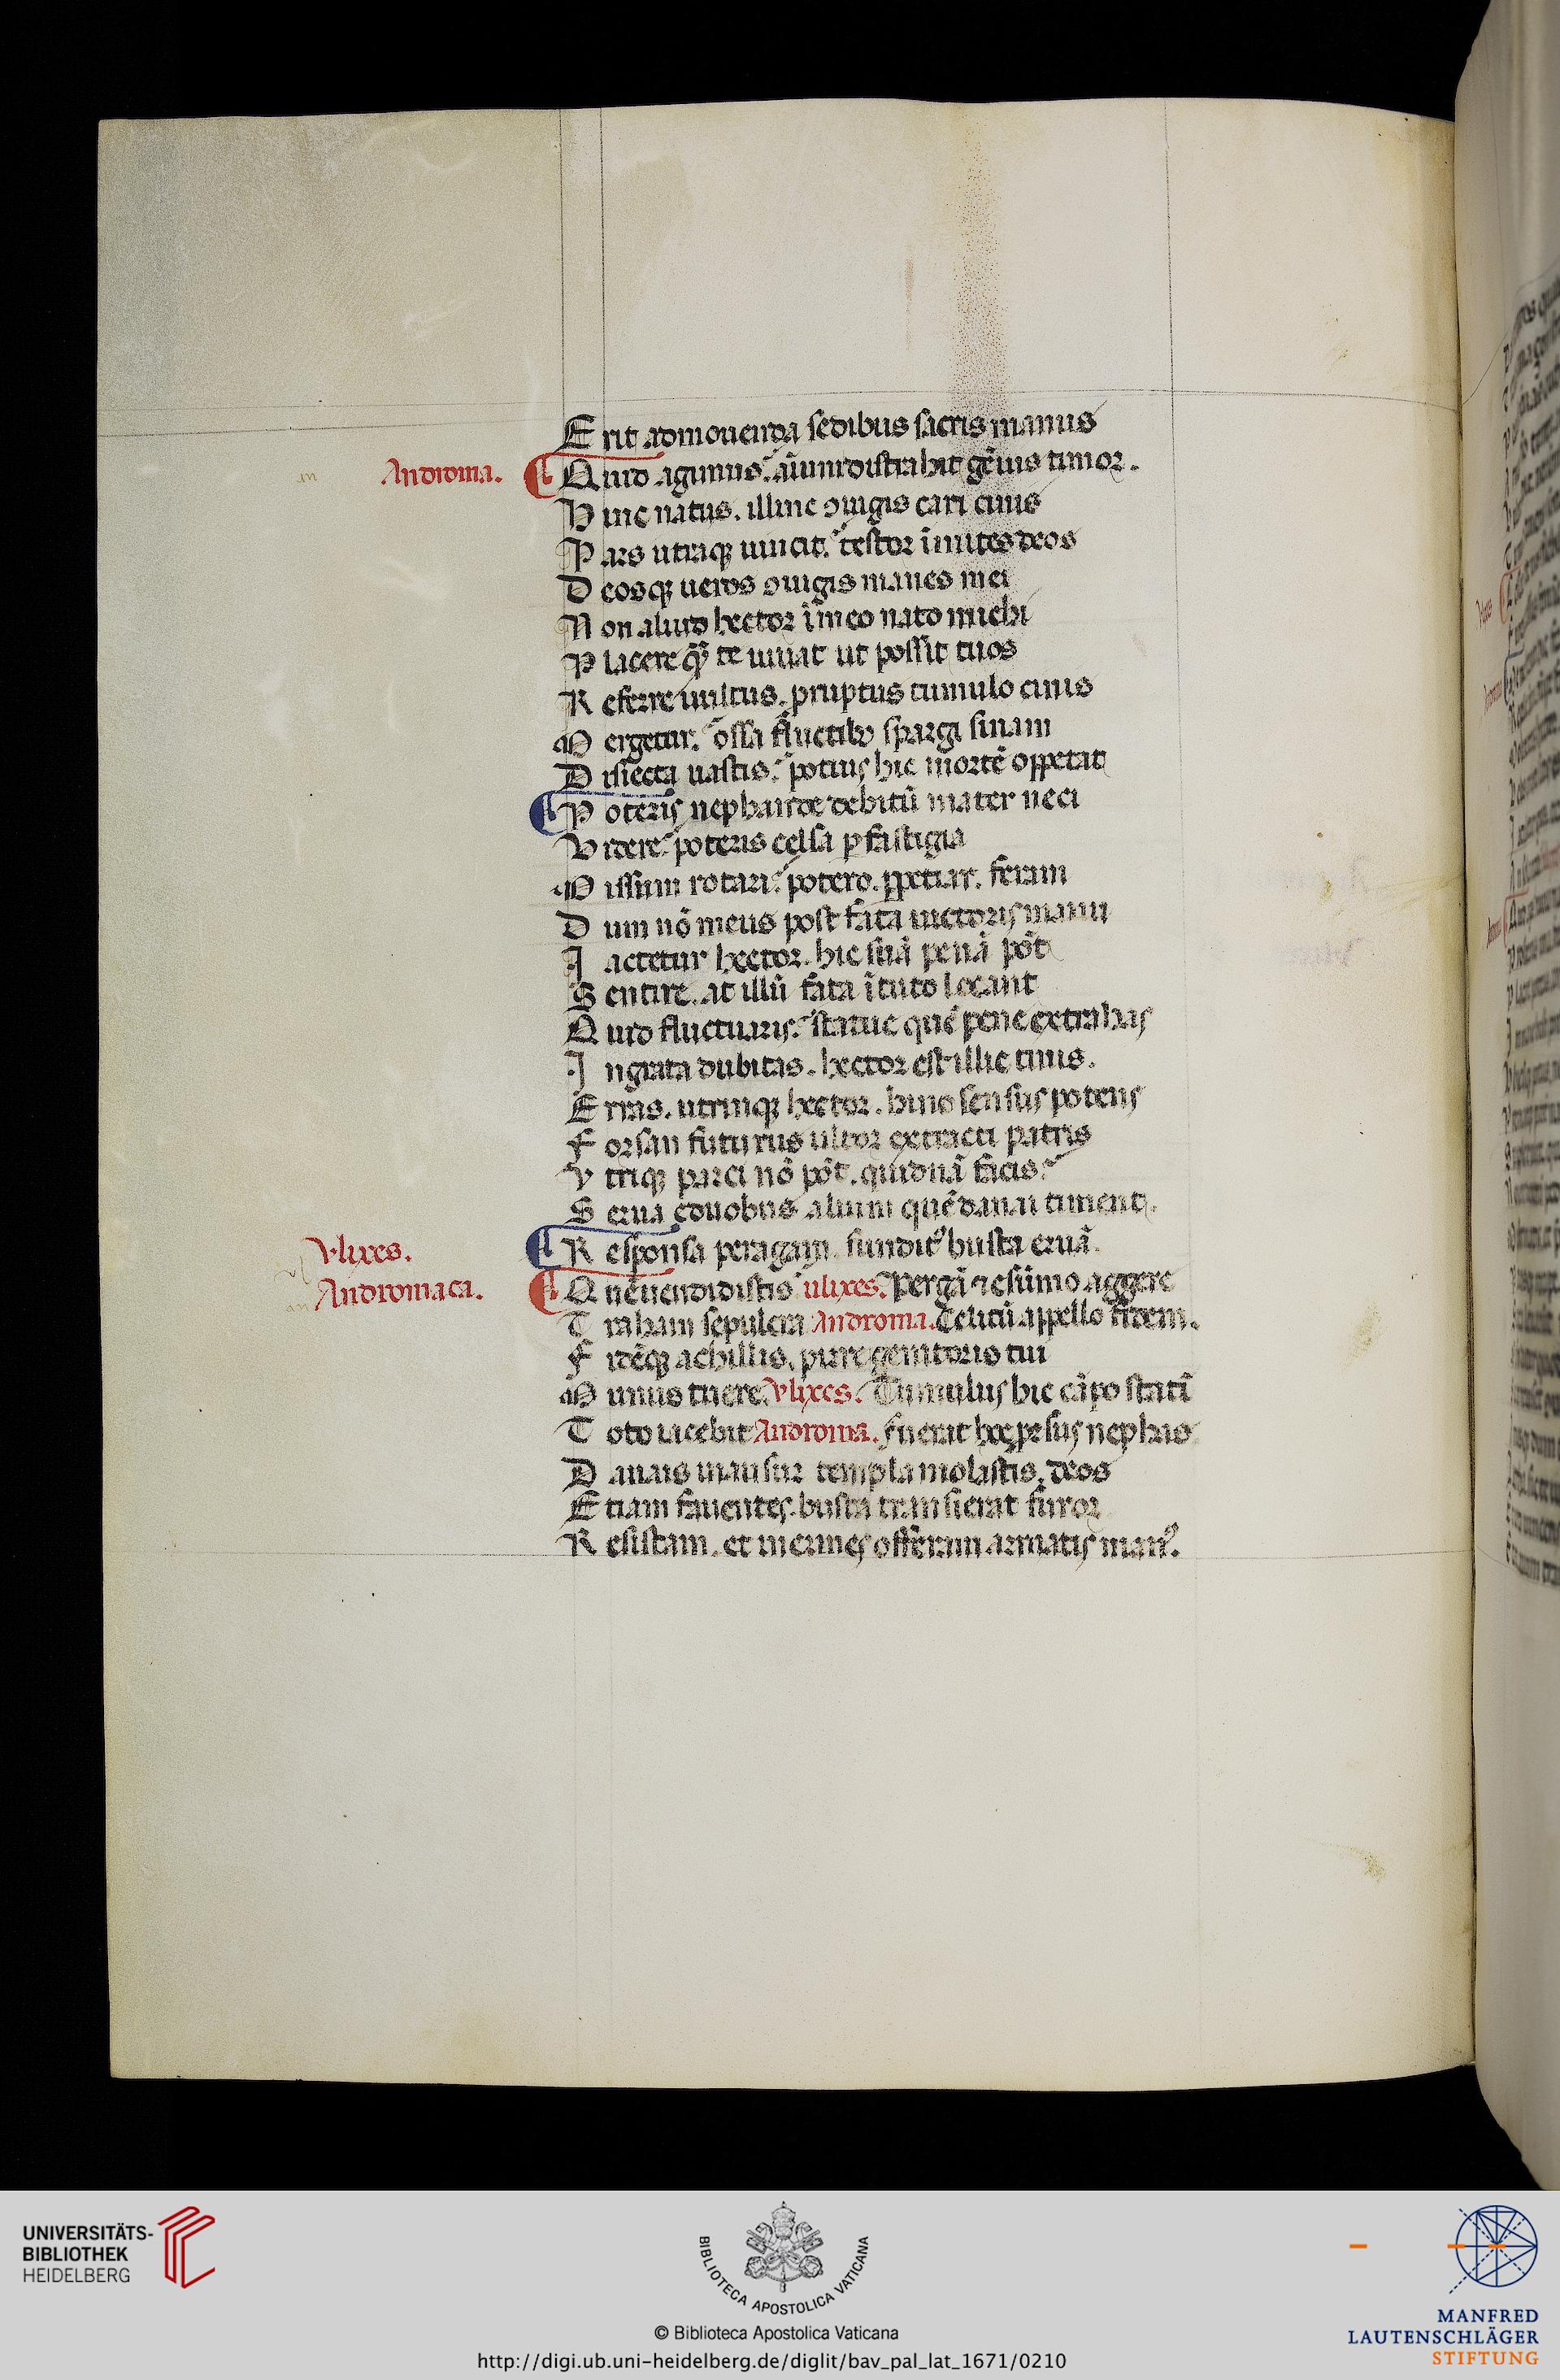 E rit admouenda sedibus sacris manus
Androma. Q uid agimus. aīum distrahit gēius timor.
H inc natus. illinc ɔiugis cari cinis
P ars utraqꝫ uincit. testor īmites deos
D eosqꝫ ueros ɔiugis manes mei
N on aliud hector ī meo nato michi
P lacere qᷓ te uiuat ut possit tuos
R eferre uultus. pruptus tumulo cinis
M ergetur. ossa fluctibꝰ spargi sinam
D isiecta uastis. potius hic mortē oppetat
P oteris nephande debitū mater neci
V idere. poteris celsa ꝑ fastigia
M issum rotari. potero. ꝑpetiar. feram
D um nō meus post fata uictoris manu
I actetur hector. hic suā penā pōt
S entire. at illū fata ī tuto locant
Q uid fluctuaris. statue quē pene extrahas
I ngrata dubitas. hector est illic tuus.
E rras. utrinqꝫ hector. hinc sensus potens
F orsan futurus ultor extincti patris
V triqꝫ parci nō pōt. quidnā facis.
S erua e duobus alium quē danai timent.
Vlixes. R esponsa peragam. funditꝰ busta eruā.
Andromaca. Q uē uendidistis ulixes. Pergā ⁊ e sūmo aggere
T raham sepulcra Androma. Celitū appello fidem.
F idēqꝫ achillis. pirre genitoris tui
M unus tuere. Vlixes. Tumulus hic cāpo statī
T oto iacebit Androma. fuerat hoc prersus nephas
D anais inausum templa molastis. deos
E tiam fauentes. busta transierat furor
R esistam. et inermes offeram armatis manꝰ.
UNIVERSITÄTS-
BIBLIOTHEK
HEIDELBERG
BIBLIOTECA APOSTOLICA VATICANA
© Biblioteca Apostolica Vaticana
http://digi.ub.uni-heidelberg.de/diglit/bav_pal_lat_1671/0210
MANFRED
LAUTENSCHLÄGER
STIFTUNG